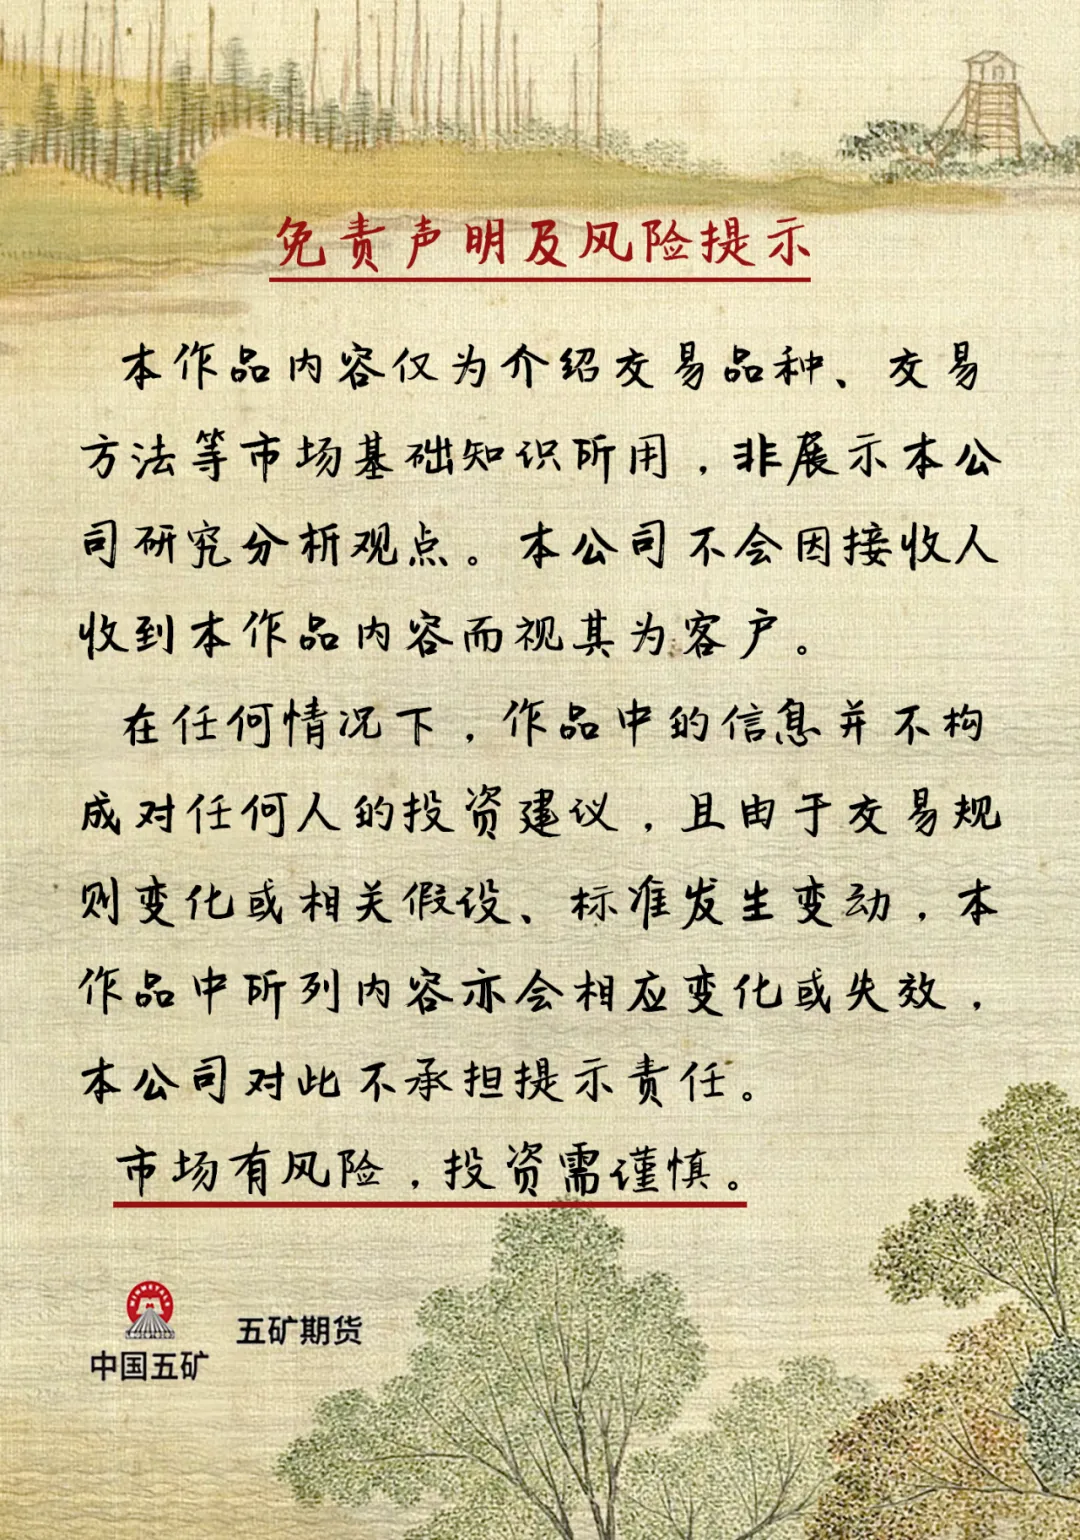 免责声明及风险提示
本作品内容仅为介绍交易品种、交易
方法等市场基础知识所用，非展示本公
司研究分析观点。本公司不会因接收人
收到本作品内容而视其为客户。
在任何情况下，作品中的信息并不构
成对任何人的投资建议，且由于交易规
则变化或相关假设、标准发生变动，本
作品中所列内容亦会相应变化或失效，
本公司对此不承担提示责任。
市场有风险，投资需谨慎。
中国五矿
五矿期货